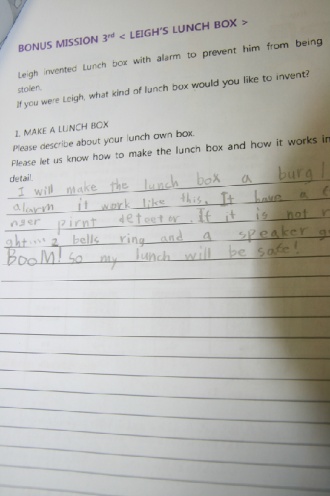 BONUS MISSION 3rd < LEIGH'S LUNCH BOX >
Leigh invented Lunch box with alarm to prevent him from being
stolen.
If you were Leigh, what kind of lunch box would you like to invent?
1. MAKE A LUNCH BOX
Please describe about your lunch own box.
Please let us know how to make the lunch box and how it works in
detail.
I will make the lunch box a burgl
alarm it work like this. It have a
nger pirnt detector. If it is not
bells ring and a speaker
BOOM! so my lunch will be safe!